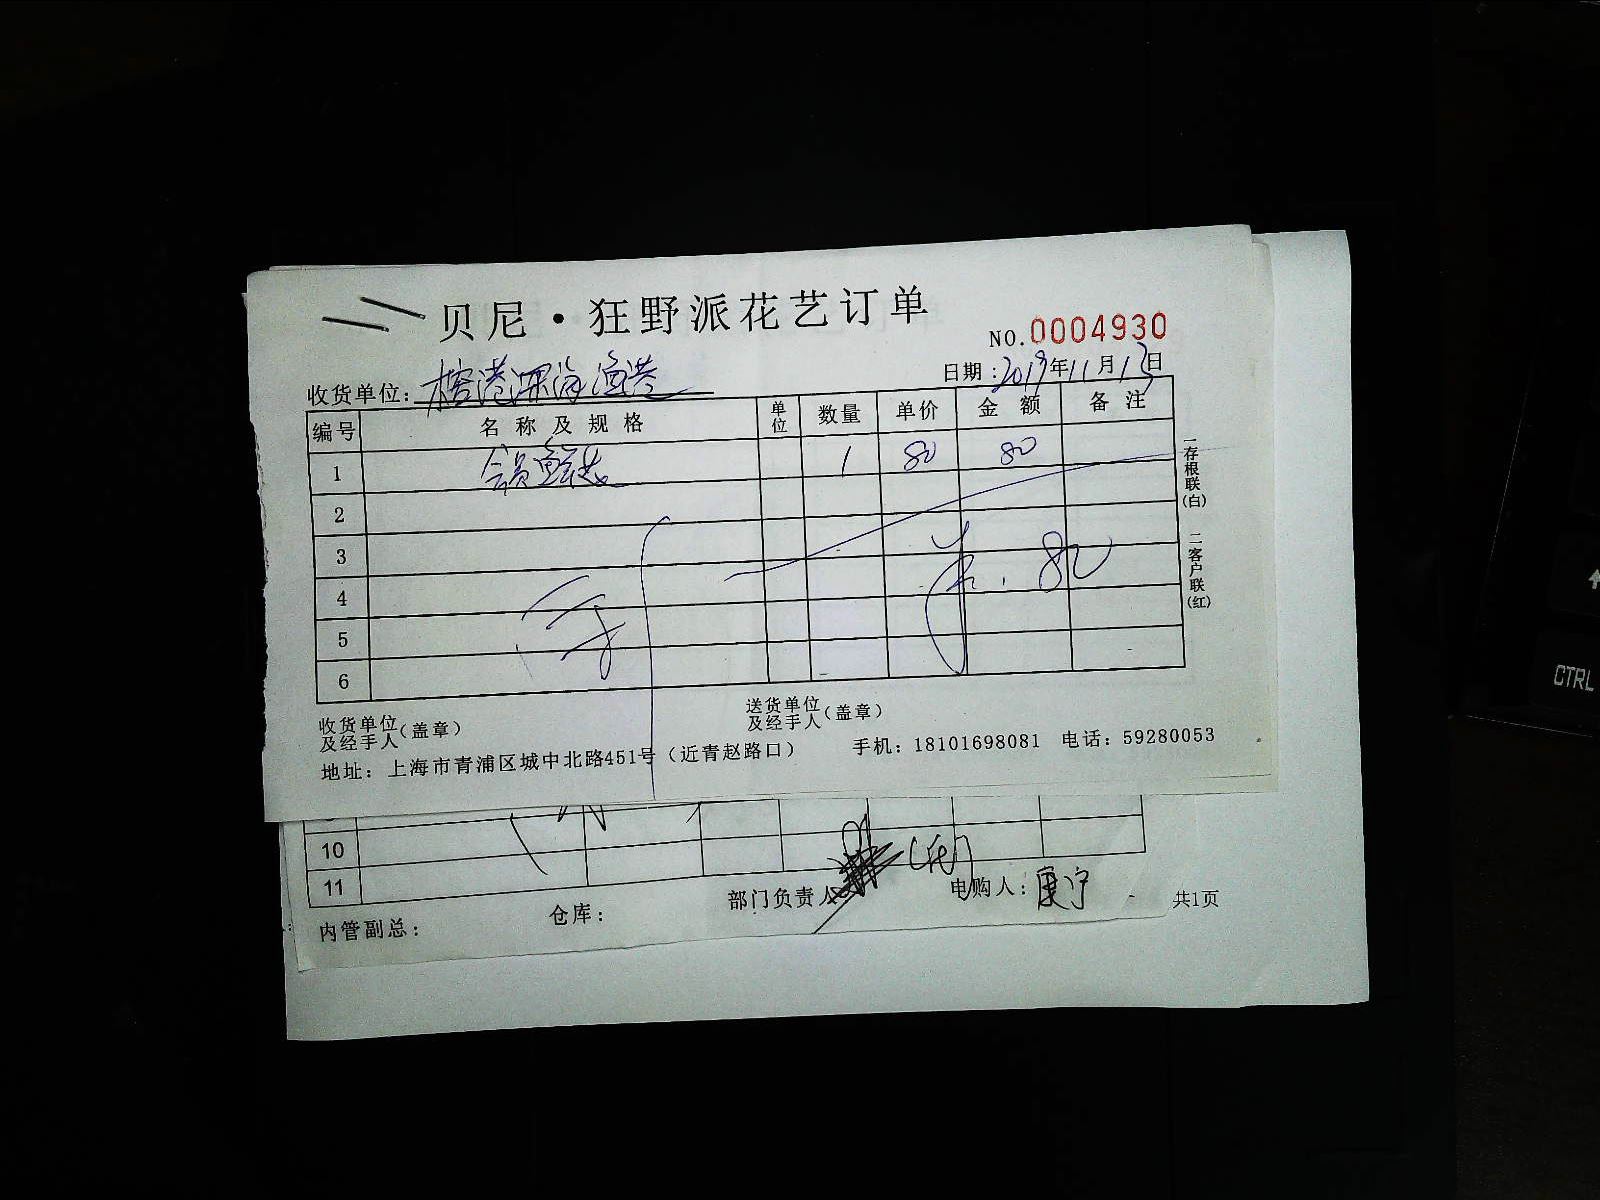 贝尼·狂野派花艺订单
NO.0004930
收货单位：榕港深海渔港
日期：2019年11月13日
编号 名称及规格 单位 数量 单价 金额 备注
1 会员 1 80 80
2
3
4
5
6
80
一存根联(白) 二客户联(红)
收货单位及经手人(盖章)
送货单位及经手人(盖章)
地址：上海市青浦区城中北路451号（近青赵路口） 手机：18101698081 电话：59280053
10
11
内管副总： 仓库： 部门负责人 申购人：康宁 共1页
CTRL